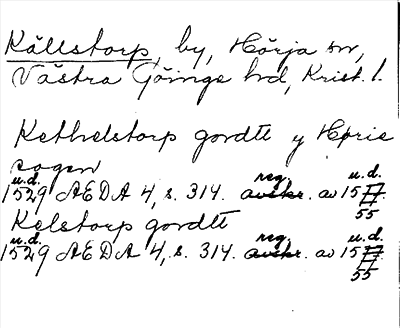 Källstorp, by, Hörja sn,
Västra Göinge hd, Krist. l.
Kethelstorp gordtt y Hørie
sogen
u.d. reg. u.d.
1529 ÆDA 4, s. 314. avskr. av 1577
55
Kelstorp gordtt
u.d. reg. u.d.
1529 ÆDA 4, s. 314. avskr. av 1577
55